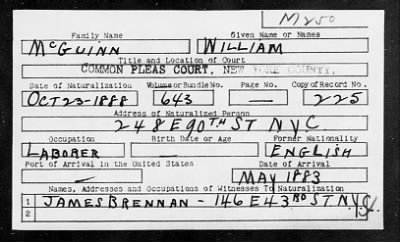 M250
Family Name Given Name or Names
McGUINN WILLIAM
Title and Location of Court
COMMON PLEAS COURT, NEW YORK COUNTY.
Date of Naturalization Volume or Bundle No. Page No. Copy of Record No.
OCT 23-1888 643 — 225
Address of Naturalized Person
248 E 90TH ST NYC
Occupation Birth Date or Age Former Nationality
LABORER ENGLISH
Port of Arrival in the United States Date of Arrival
MAY 1883
Names, Addresses and Occupations of Witnesses To Naturalization
1 JAMES BRENNAN - 146 E 43RD ST N.Y.
2